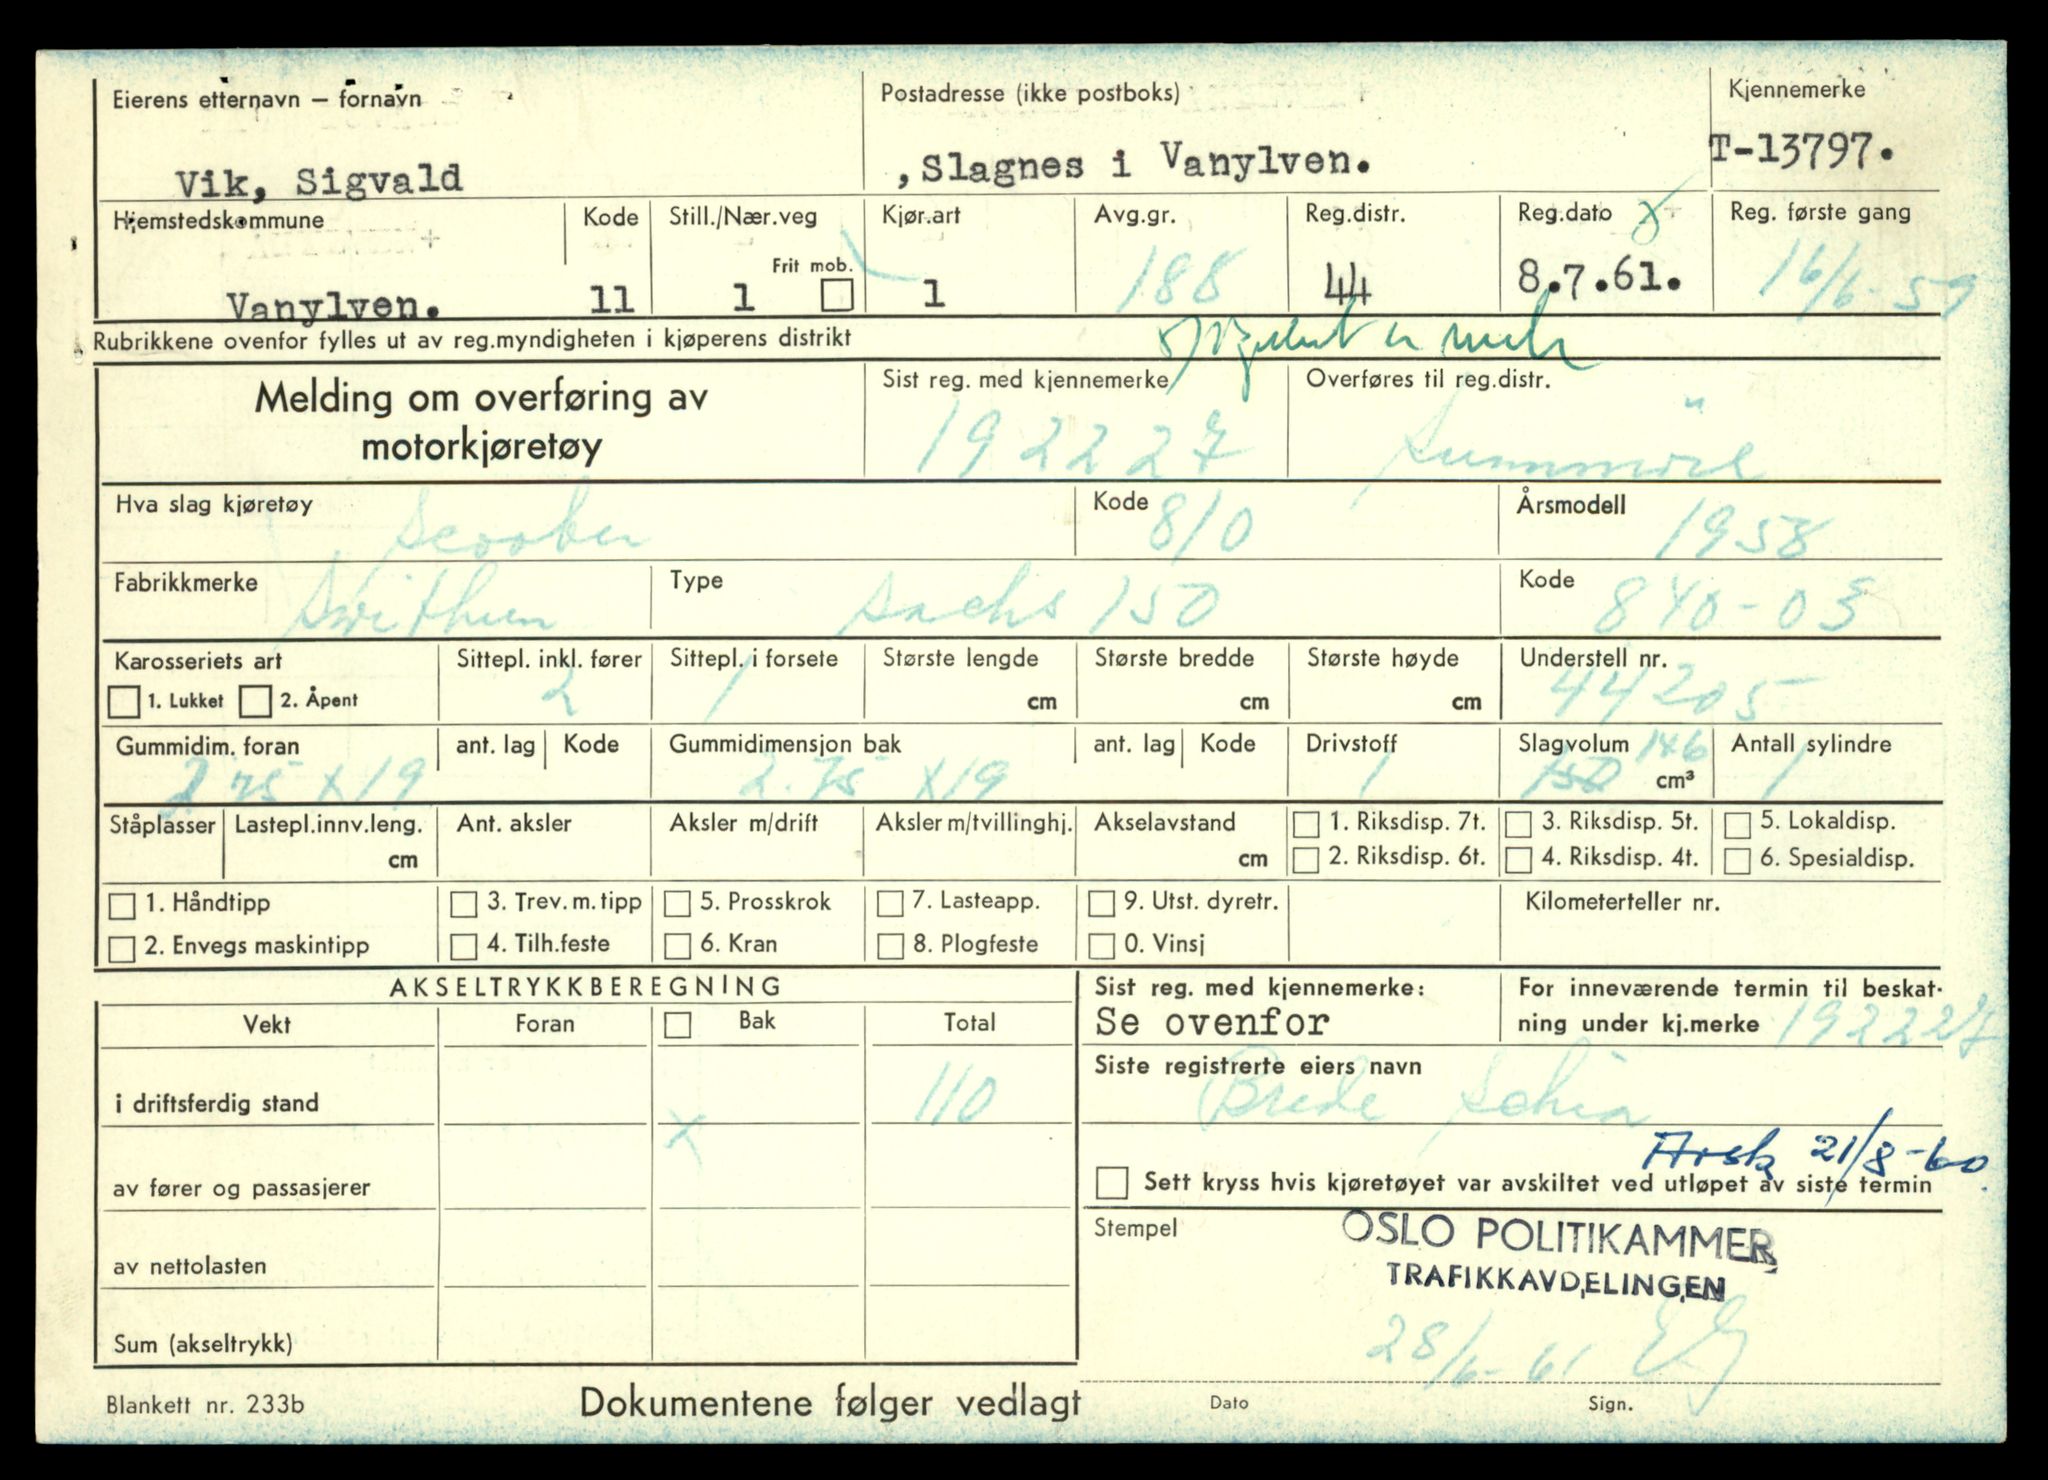 Eierens etternavn – fornavn
Postadresse (ikke postboks)
Kjennemerke
Vik, Sigvald
,Slagnes i Vanylven.
T-13797.
Hjemstedskommune
Kode
Still./Nær.veg
Kjør.art
Avg.gr.
Reg.distr.
Reg.dato
Reg. første gang
Frit mob.
Vanylven.
11
1
1
188
44
8.7.61.
16/6-59
Rubrikkene ovenfor fylles ut av reg.myndigheten i kjøperens distrikt
Melding om overføring av
motorkjøretøy
Sist reg. med kjennemerke
Overføres til reg.distr.
192227
Sunnmöre
Hva slag kjøretøy
Kode
Årsmodell
Scooter
810
1958
Fabrikkmerke
Type
Kode
Svithun
Sachs 150
840-03
Karosseriets art
Sittepl. inkl. fører
Sittepl. i forsete
Største lengde
Største bredde
Største høyde
Understell nr.
1. Lukket
2. Åpent
2
1
cm
cm
cm
44205
Gummidim. foran
ant. lag
Kode
Gummidimensjon bak
ant. lag
Kode
Drivstoff
Slagvolum
146
Antall sylindre
2.75 x 19
2.75 x 19
1
150
cm³
1
Ståplasser
Lastepl.innv.leng.
Ant. aksler
Aksler m/drift
Aksler m/tvillinghj.
Akselavstand
1. Riksdisp. 7t.
3. Riksdisp. 5t.
5. Lokaldisp.
cm
cm
2. Riksdisp. 6t.
4. Riksdisp. 4t.
6. Spesialdisp.
1. Håndtipp
3. Trev. m. tipp
5. Prosskrok
7. Lasteapp.
9. Utst. dyretr.
Kilometerteller nr.
2. Envegs maskintipp
4. Tilh.feste
6. Kran
8. Plogfeste
0. Vinsj
AKSELTRYKKBEREGNING
Sist reg. med kjennemerke:
For inneværende termin til beskat-
Vekt
Foran
Bak
Total
Se ovenfor
ning under kj.merke
192227
Siste registrerte eiers navn
i driftsferdig stand
110
x
Brede
21/8-60.
av fører og passasjerer
Sett kryss hvis kjøretøyet var avskiltet ved utløpet av siste termin
Stempel
OSLO POLITIKAMMER
TRAFIKKAVDELINGEN
av nettolasten
28/6-61
Sum (akseltrykk)
Blankett nr. 233b
Dokumentene følger vedlagt
Dato
Sign.